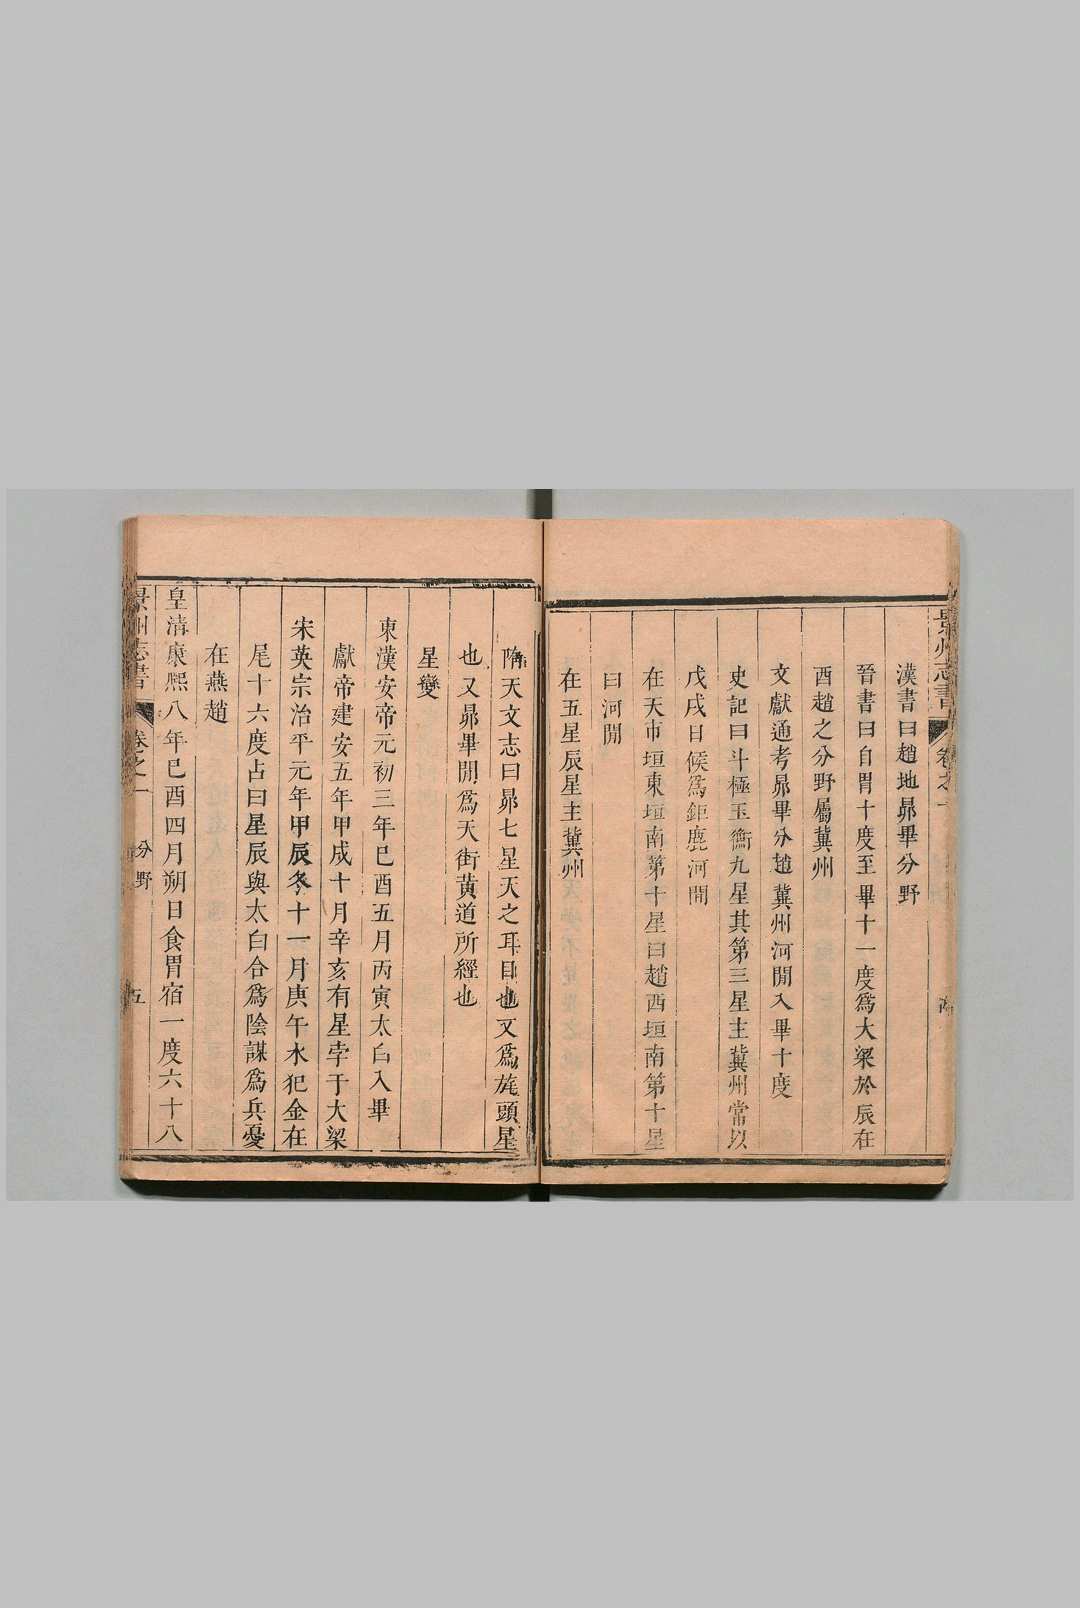 景州志書 卷之一
漢書曰趙地昴畢分野
晉書曰自胃十度至畢十一度爲大梁於辰在
酉趙之分野屬冀州
文獻通考昴畢分趙冀州河閒入畢十度
史記曰斗極玉衡九星其第三星主冀州常以
戊戌日候爲鉅鹿河閒
在天市垣東垣南第十星曰趙西垣南第十星
曰河閒
在五星辰星主冀州
隋天文志曰昴七星天之耳目也又爲旄頭星
也又昴畢閒爲天街黄道所經也
星變
東漢安帝元初三年巳酉五月丙寅太白入畢
獻帝建安五年甲戌十月辛亥有星孛于大梁
宋英宗治平元年甲辰冬十一月庚午水犯金在
尾十六度占曰星辰與太白合爲陰謀爲兵憂
在燕趙
皇清康熙八年巳酉四月朔日食胃宿一度六十八
景州志書 卷之一 分野 五